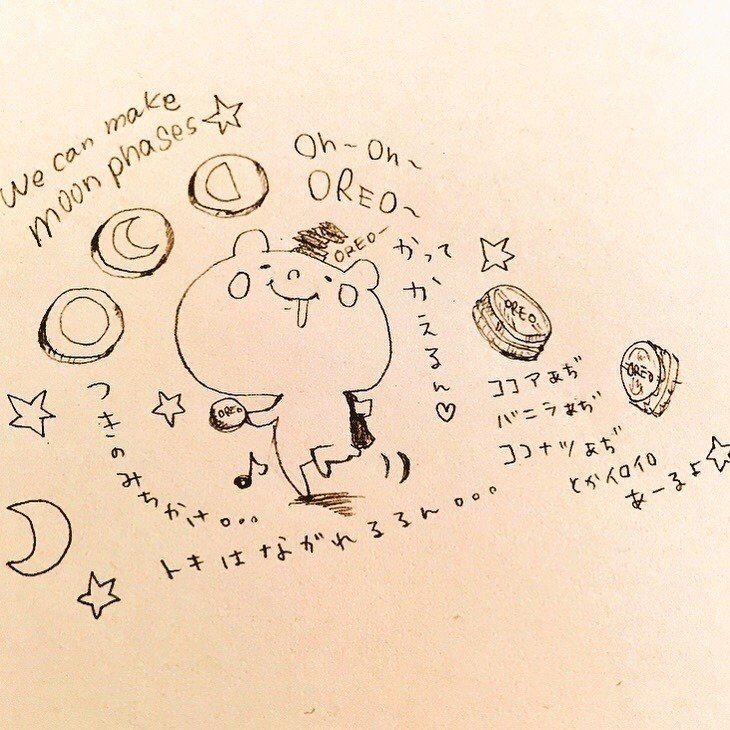 We can make
moon phases
Oh~Oh~
OREO~
OREO~
かって
かえるん♡
OREO
OREO
OREO
ココアあぢ
バニラあぢ
ココナツあぢ
とかイロイロ
あーるよ
つきの
みちかけ...
トキはながれるるん...